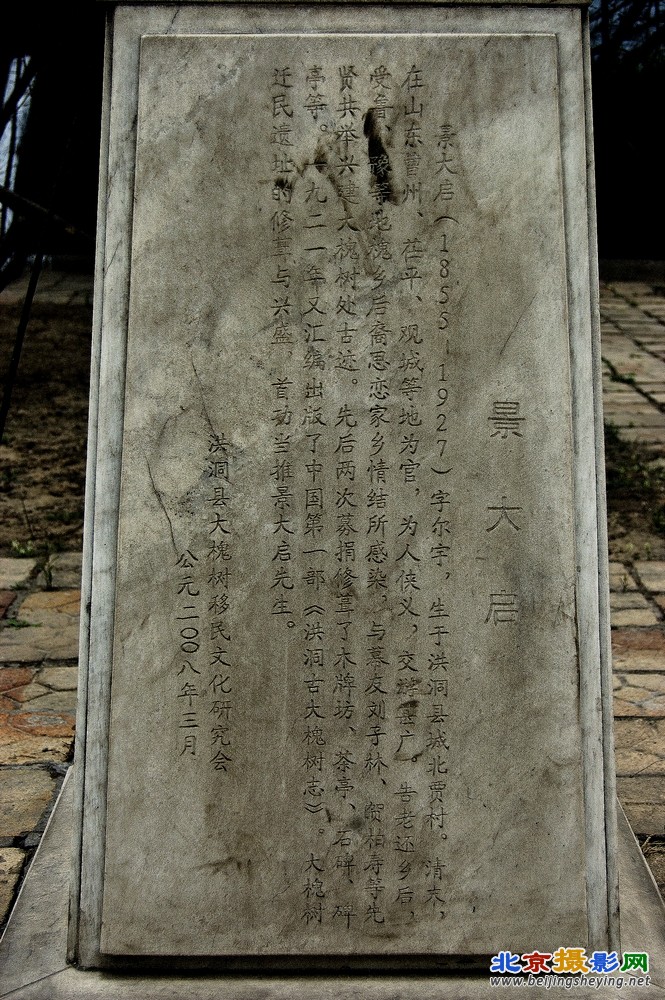 景大启
景大启（1855—1927）字尔宇，生于洪洞县城北贾村。清末，
在山东曹州、茌平、观城等地为官，为人侠义，交游甚广。告老还乡后，
受鲁、豫等地槐乡后裔思恋家乡情结所感染，与幕友刘子林、贺柏寿等先
贤共举兴建大槐树处古迹。先后两次募捐修葺了木牌坊、茶亭、石碑、碑
亭等。一九二一年又汇编出版了中国第一部《洪洞古大槐树志》。大槐树
迁民遗址的修葺与兴盛，首功当推景大启先生。
洪洞县大槐树移民文化研究会
公元二〇〇八年三月
北京摄影网
www.beijingsheying.net